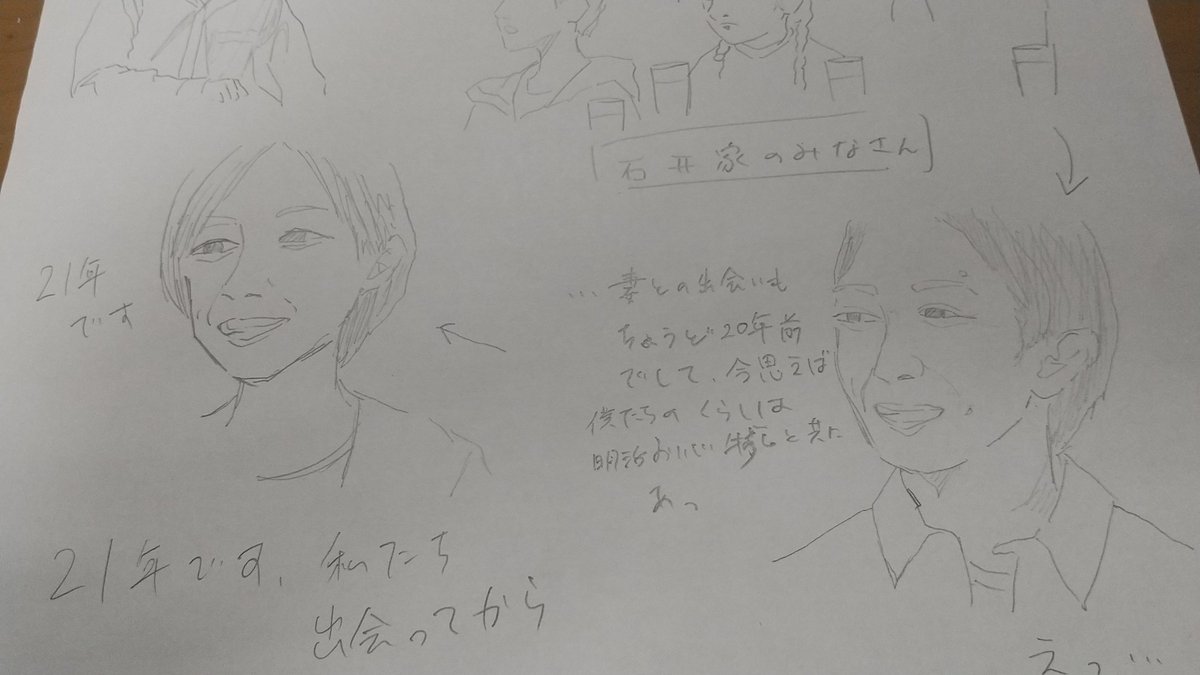 石井家のみなさん
…妻との出会いも
ちょうど20年前
でして、今思えば
僕たちのくらしは
明治おいしい牛乳と共に
あっ
21年
です
21年です、私たち
出会ってから
えっ…